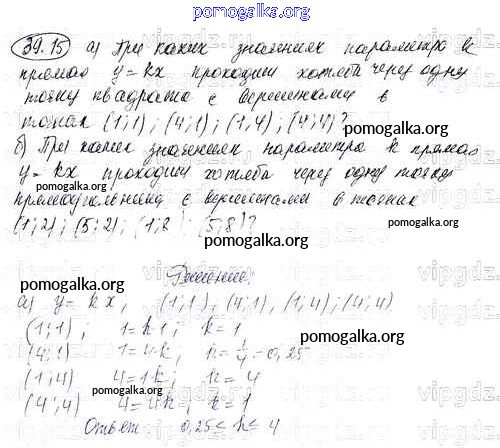 pomogalka.org
39.15 а) При каких значениях параметра k
прямая y = kx проходит хотя бы через одну
точку квадрата с вершинами в
точках (1;1); (4;1); (1;4); (4;4)?
pomogalka.org
б) При каких значениях параметра k прямая
y = kx проходит хотя бы через одну точку
pomogalka.org
прямоугольника с вершинами в точках
(1;2); (5;2); (1;8); (5;8)?
pomogalka.org
Решение:
pomogalka.org
а) y = kx, (1;1), (4;1), (1;4); (4;4)
(1;1); 1=k·1; k=1
pomogalka.org
(4;1) 1=4·k; k=1/4=0,25
(1;4) 4=1k; k=4
pomogalka.org
(4;4) 4=4k; k=1
Ответ: 0,25 ≤ k ≤ 4
pomogalka.org